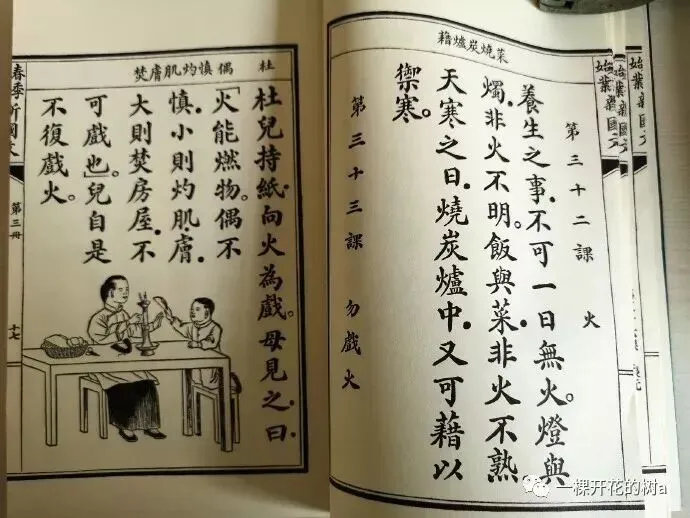 始業新國文
始業新國文
菜燒炭爐藉
第三十二課 火
養生之事.不可一日無火。燈與
燭.非火不明。飯與菜.非火不熟
天寒之日.燒炭爐中.又可藉以
禦寒。
第三十三課 勿戲火
杜 偶慎灼肌膚焚
杜兒持紙.向火為戲。母見之.曰.
「火能燃物。偶不
慎.小則灼肌膚.
大則焚房屋.不
可戲也」兒自是
不復戲火。
春季新國文 第三冊 十七
一棵开花的树a